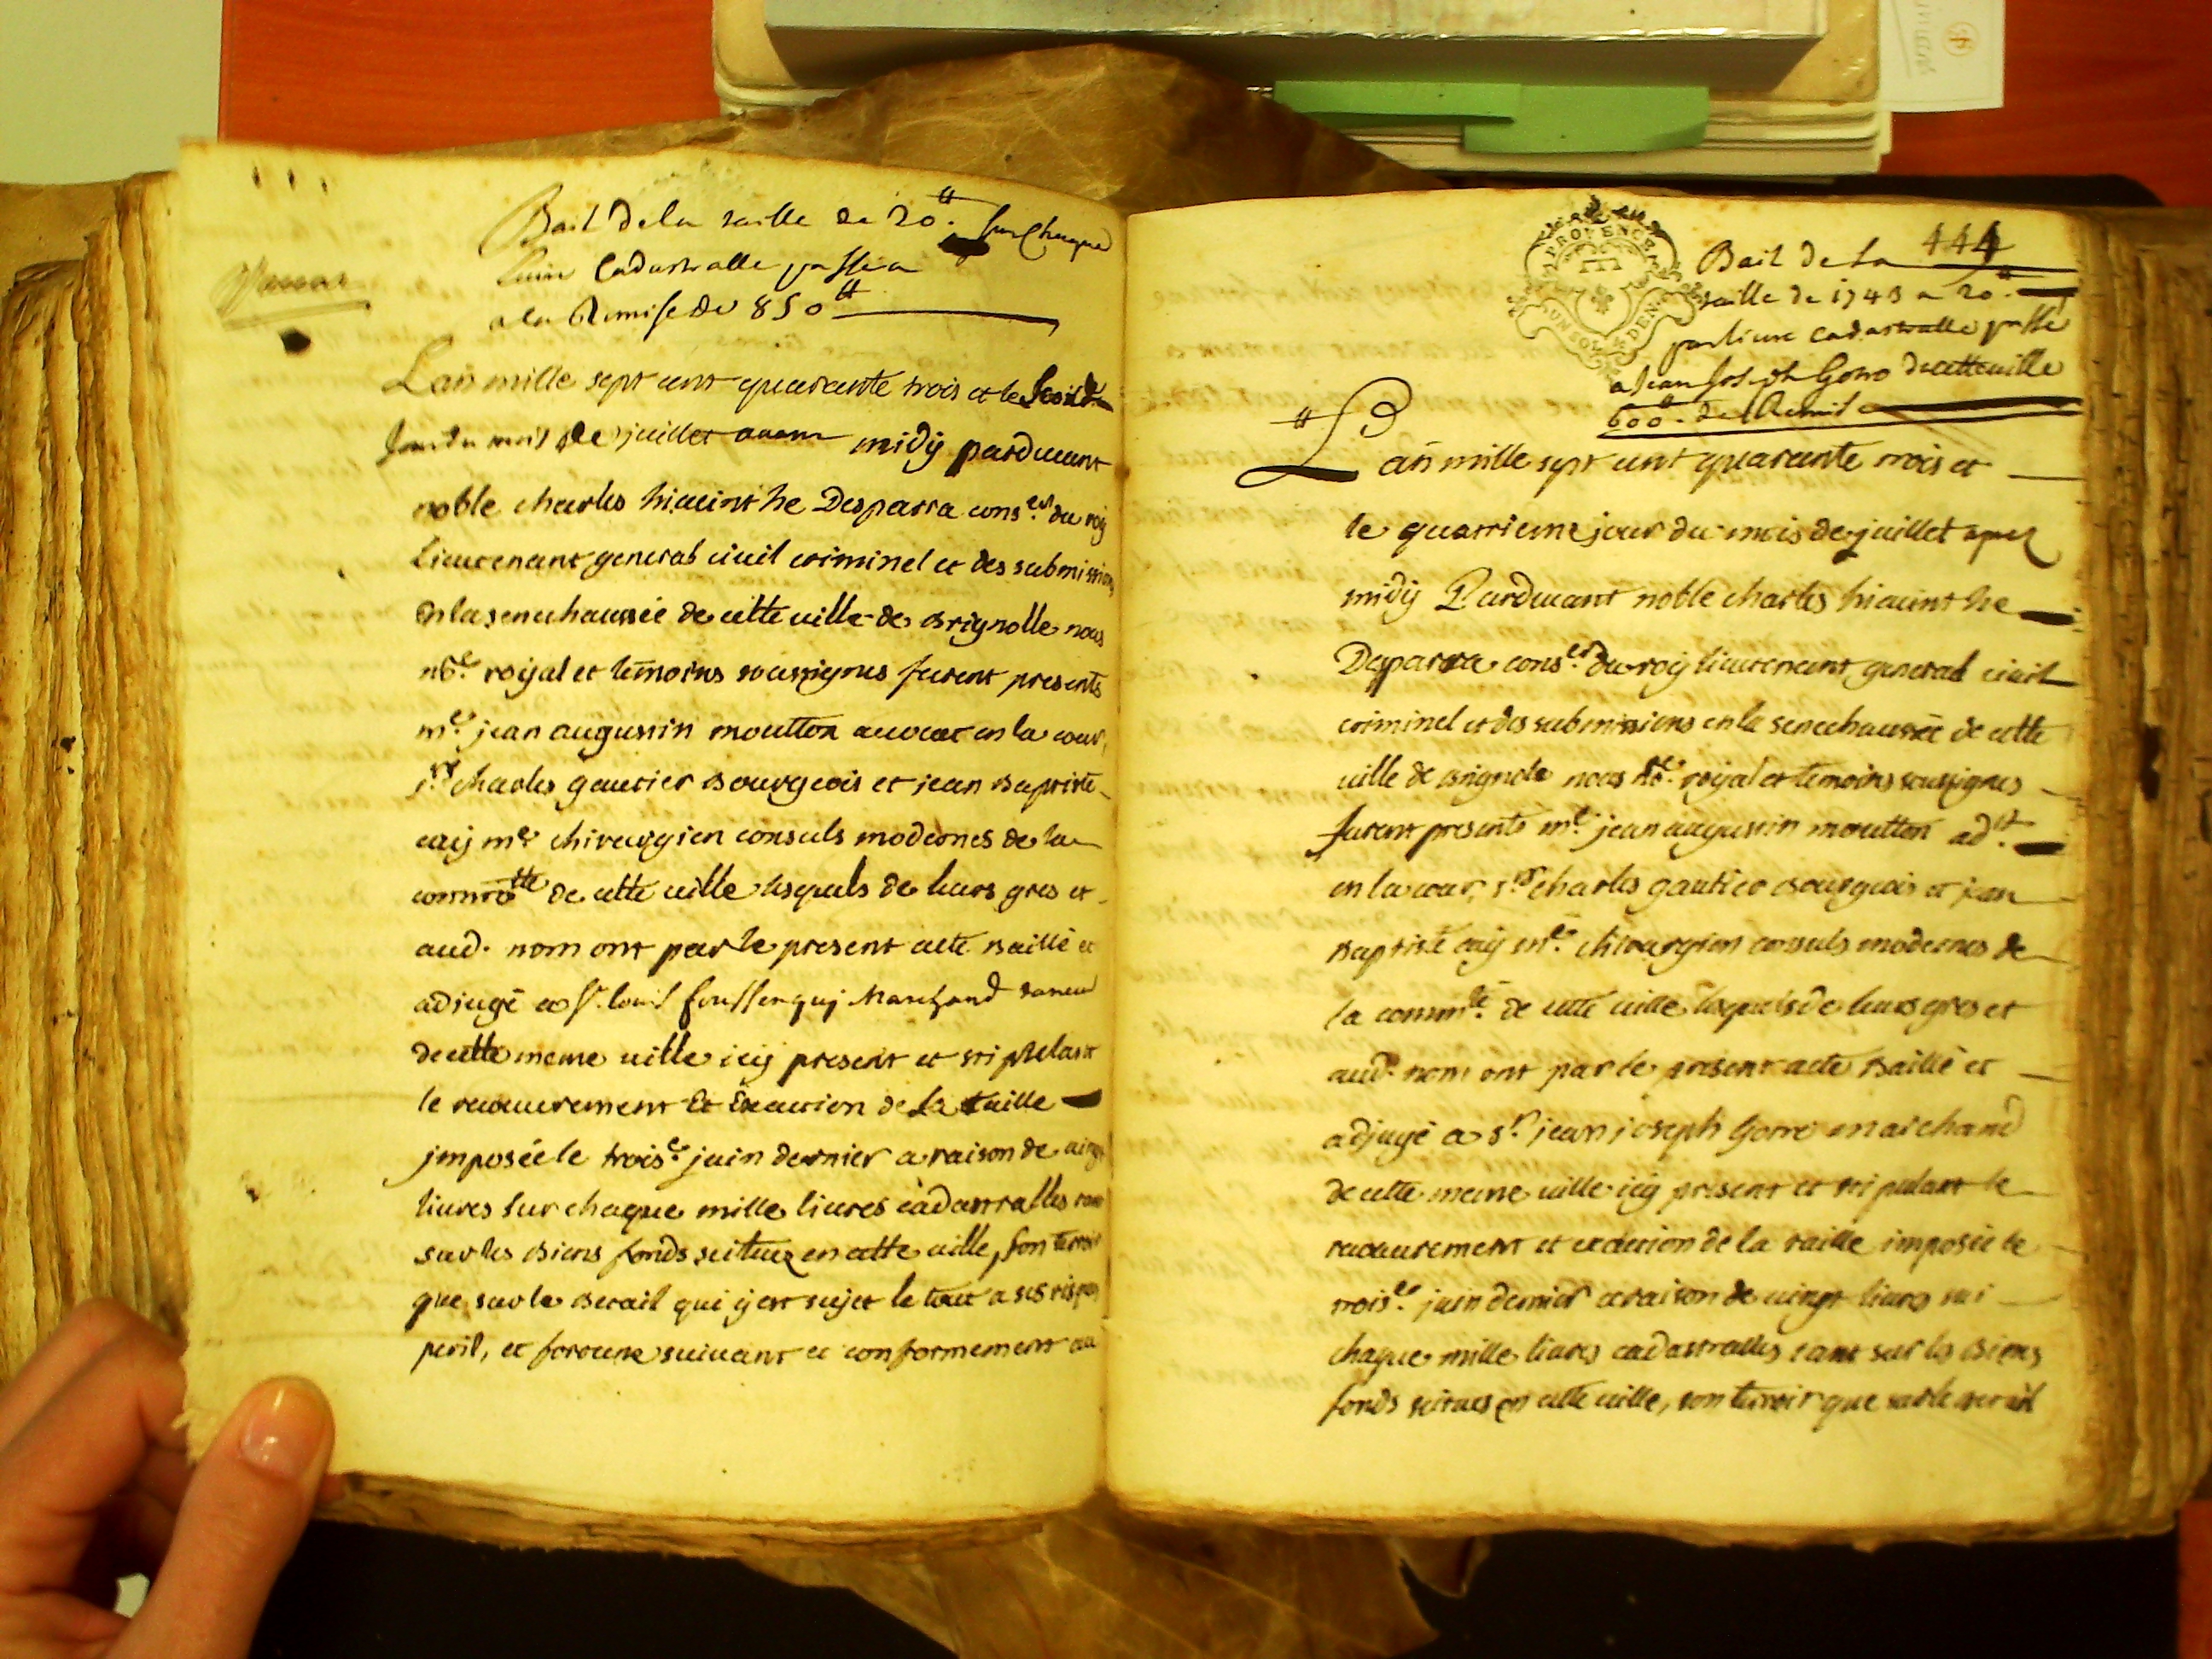 Bail de la taille de 20 ₶. sur chaque
livre Cadastralle passé a
a la Remise de 850 ₶
L'an mille sept cent quarante trois et le
jour du mois de juillet avant midÿ pardevant
noble charles hiacinthe Desparra cons.er du roy
Lieutenant general civil criminel et des submissions
en la senechaussée de cette ville de Brignolle nous
no.re roÿal et temoins soussignes furent presents
m.e jean augustin moutton avocat en la cour,
s.r charles gautier Bourgeois et jean Baptiste
caÿ m.e chirurgien consuls modernes de la
commté de cette ville lesquels de leurs gres et
aud. nom ont par le present acte Baillé et
adjugé a s.r louis foussenquy Marchand taneur
de cette meme ville icÿ present et stiplelant
le recouvrement Et Exaction de La taille
jmposée le trois.e juin dernier a raison de vingt
livres sur chaque mille livres cadastralles tant
sur les Biens fonds scituez en cette ville, son terroir
que sur le Betail qui ÿ est sujet le tout a ses risques
peril, et fortune suivant et conformement au
PROVENCE
UN SOL 4 DEN
444
Bail de la
taille de 1743 a 20 ₶.
par livre cadastralle passé
a Jean Joseph Gorro de cette ville
600 ₶. de Remise
L'an mille sept cent quarante trois et
le quattrieme jour du mois de juillet apres
midÿ Pardevant noble charles hiacinthe
Desparra cons.er du roy lieutenant general civil
criminel et des submissions en la senechaussée de cette
ville de Brignole nous no.re roÿal et temoins soussignes
furent presents m.e jean augustin moutton ad.t
en la cour, s.r charles gautier Bourgeois et jean
Baptiste caÿ m.e chirurgien consuls modernes de
la comm.té de cette ville lesquels de leurs gres et
aud. nom ont par le present acte Baillé et
adjugé a s.r jean joseph Gorro marchand
de cette meme ville icÿ present et stipulant le
recouvrement et exaction de la taille imposée le
trois.e juin dernier a raison de vingt livres sur
chaque mille livres cadastralles tant sur les Biens
fonds scitues en cette ville, son terroir que sur le Betail